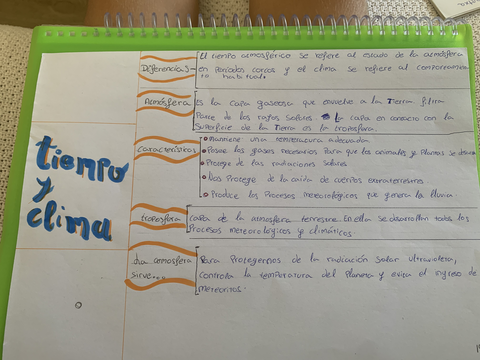 tiempo
y
clima
Diferencias
El tiempo atmosférico se refiere al estado de la atmósfera
en períodos cortos y el clima se refiere al comportamiento
Atmósfera
Es la capa gaseosa que envuelve a la Tierra filtra
Parte de los rayos solares. La capa en contacto con la
Superficie de la Tierra es la troposfera.
Características
Mantiene una temperatura adecuada
Posee los gases necesarios Para que los animales y Plantas se
Protege de las radiaciones solares
Nos Protege de la caída de cuerpos extraterrestres
Produce los Procesos meteorológicos que genera la lluvia.
troposfera
capa de la atmosfera terrestre. En ella se desarrollan todos los
Procesos meteorológicos y climáticos.
La atmosfera
sirve...
Para Protegernos de la radiación solar ultravioleta,
controla la temperatura del Planeta y evita el ingreso de
meteoritos.